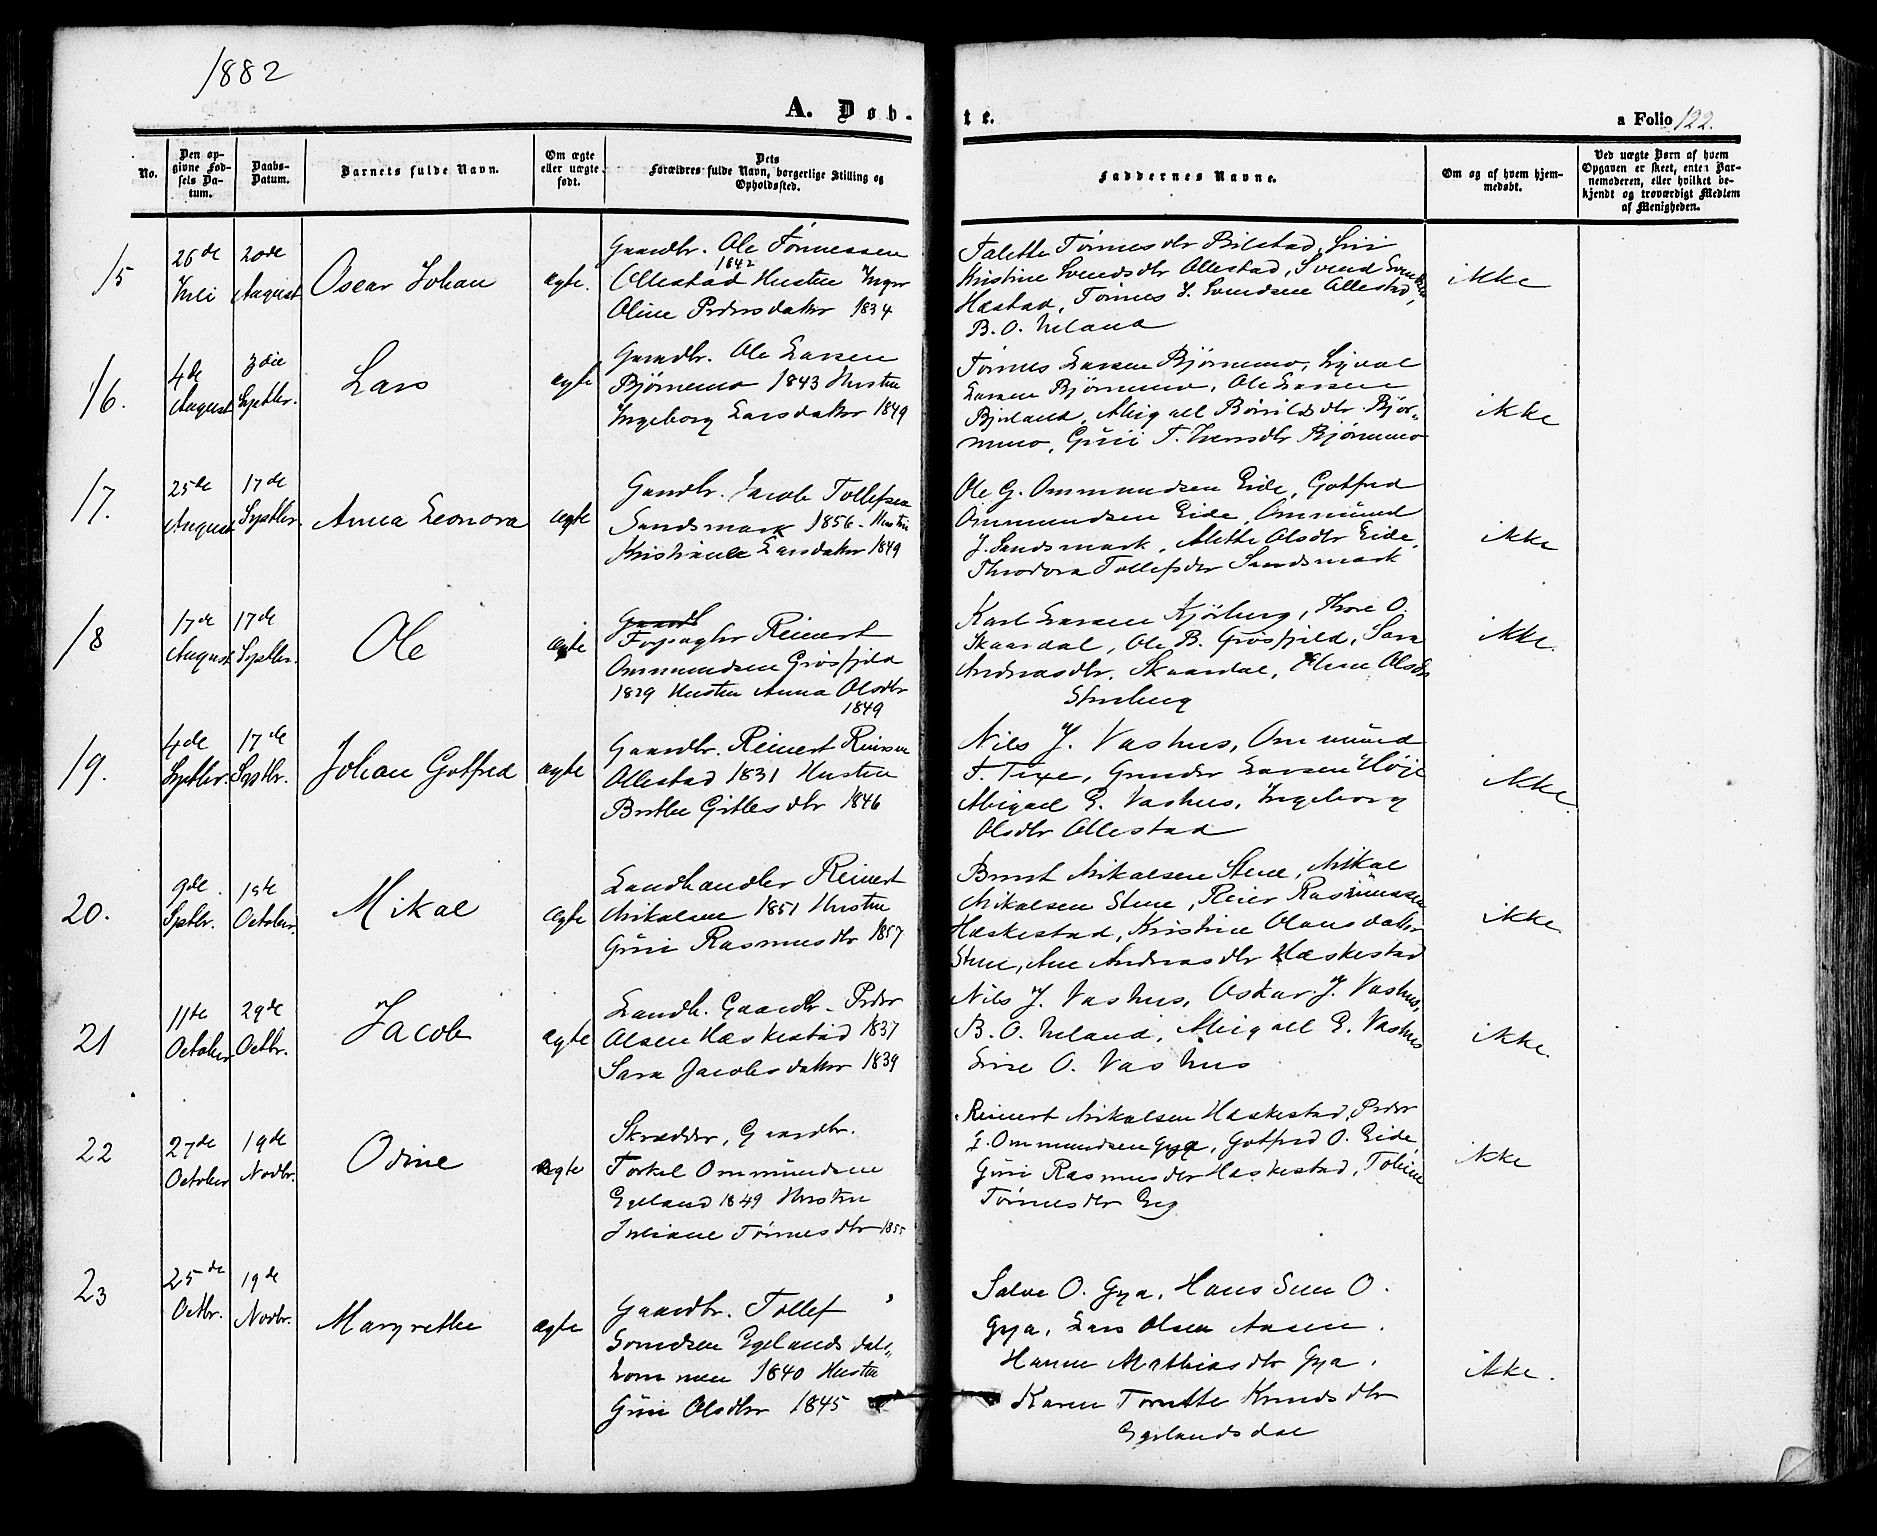 1882
A. Døb-
te.
a Folio 122.
No.
Den op-
givne Fød-
sels Da-
tum.
Daabs-
Datum.
Barnets fulde Navn.
Om ægte
eller uægte
født.
Dets
Forældres fulde Navn, borgerlige Stilling og
Opholdssted.
Faddernes Navne.
Om og af hvem hjem-
medøbt.
Ved uægte Børn af hvem
Opgaven er skeet, enten Bar-
nemoderen, eller hvilket be-
kjendt og troværdigt Medlem
af Menigheden.
15
26de
Juli
20de
August
Oscar Johan
ægte.
Gaardbr. Ole Tønnessen
1842
Ollestad Hustru Inger
Oline Pedersdatter 1834
Talette Tønnesdtr Bilstad, Siri
Kristine Svendsdtr Ollestad, Svend Svendsen
Hæstad, Tønnes S. Svendsen Ollestad,
B. O. Ueland
ikke
16.
4de
August
3die
Septbr.
Lars
ægte
Gaardbr. Ole Larsen
Bjørnemo 1843 Hustru
Ingeborg Larsdatter 1849
Tønnes Larsen Bjørnemo, Sigval
Larsen Bjørnemo, Ole Larsen
Bjuland, Abigaell Bårildsdtr Bjør-
nemo, Guri T. Iversdtr Bjørnemo
ikke
17.
25de
August
17de
Septbr.
Anna Leonora
ægte
Gaardbr. Jacob Tollefsen
Sandsmark 1856 - Hustru
Kristiane Larsdatter 1849
Ole G. Ommundsen Eide, Gotfred
Ommundsen Eide, Ommund
J. Sandsmark, Alette Olsdtr Eide,
Theodora Tollefsdtr Sandsmark
ikke
18
17de
August
17de
Septbr.
Ole
ægte
Gaardb
Forpagter Reinert
Ommundsen Grøsfjeld
1829 Hustru Anna Olsdtr
1849
Karl Larsen Kjørberg, Thore O.
Skaardal, Ole B. Grøsfjeld, Sara
Andreasdtr. Skaardal, Elene Olsdtr
Struberg
ikke.
19.
4de
Septbr.
17de
Septbr.
Johan Gotfred
ægte
Gaardbr. Reinert Reiersen
Ollestad 1831 Hustru
Berthe Gitlesdtr 1846
Nils J. Vashus, Ommund
T. Texe, Gunder Larsen Høje
Abigael E. Vashus, Ingeborg
Olsdtr Ollestad
ikke.
20.
9de
Septbr.
1ste
October.
Mikal
ægte
Landhandler Reinert
Mikalsen 1851 Hustru
Guri Rasmusdtr 1857
Bernt Mikalsen Stene, Mikal
Mikalsen Stene, Reier Rasmussen
Hæskestad, Kristine Olausdatter
Stene, Ane Andreasdtr Hæskestad
ikke
21
11te
October
29de
Octbr.
Jacob
ægte
Landh. Gaardbr. Peder
Olsen Hæskestad 1837
Sara Jacobsdatter 1839
Nils J. Vashus, Oskar J. Vashus,
B. O. Ueland, Abigaell E. Vashus
Sine O. Vashus
ikke.
22
27de
October
19de
Novbr.
Odine
ægte
Skrædder, Gaardbr.
Torkel Ommundsen
Egeland 1849 Hustru
Juliane Tønnesdtr 1855
Reinert Mikalsen Hæskestad, Peder
G. Ommundsen Gya, Gotfred O. Eide,
Guri Rasmusdtr Hæskestad, Tobine
Tønnesdtr Eeg
ikke
23
25de
Octbr.
19de
Novbr.
Margrethe
ægte
Gaardbr. Tollef
Svendsen Egelandsdals-
lommen 1840 Hustru
Guri Olsdtr 1845
Salve O. Gya, Hans Sem O.
Gya, Lars Olsen Aasen.
Hanne Mathiasdtr Gya,
Karen Tomette Knudsdtr
Egelandsdal
ikke.